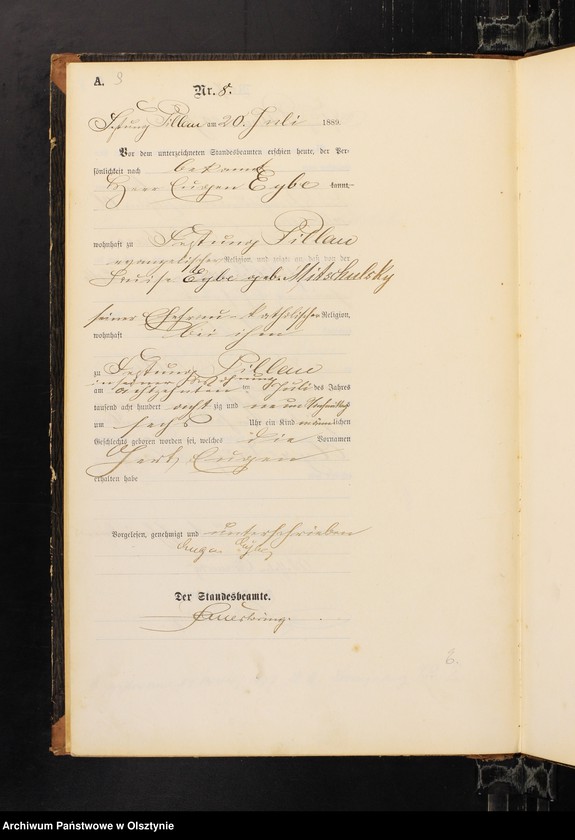 A. 9
Nr. 8.
Festung Pillau am 20. Juli 1889.
Vor dem unterzeichneten Standesbeamten erschien heute, der Per-
sönlichkeit nach bekannt
Herr Eugen Eybe kannt,
wohnhaft zu Festung Pillau
evangelischer Religion, und zeigte an, daß von der
Luise Eybe geb. Mitschulsky
seiner Ehefrau katholischer Religion,
wohnhaft bei ihm
zu Festung Pillau
in seiner Wohnung
am achtzehnten Juli des Jahres
tausend acht hundert acht zig und neun Nachmittags
um sechs Uhr ein Kind männlichen
Geschlechts geboren worden sei, welches die Vornamen
Eugen
erhalten habe
Vorgelesen, genehmigt und unterschrieben
Eugen Eybe
Der Standesbeamte.
E.
Archiwum Państwowe w Olsztynie